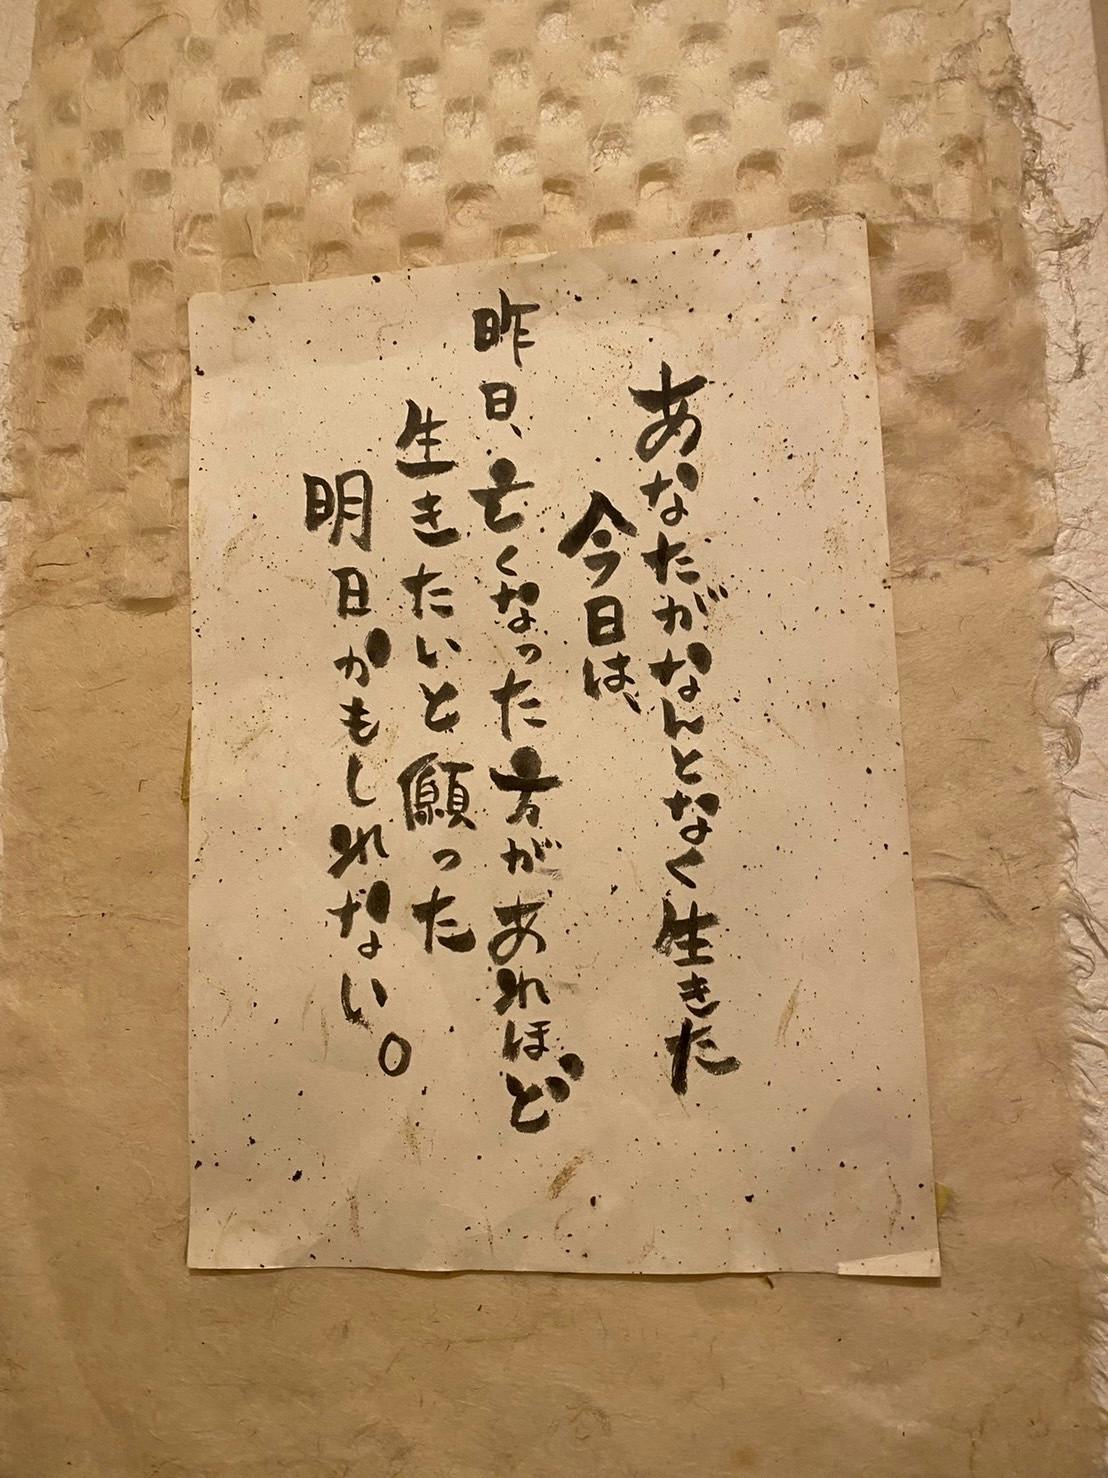 あなたがなんとなく生きた
今日は、
昨日、亡くなった方があれほど
生きたいと願った
明日かもしれない。